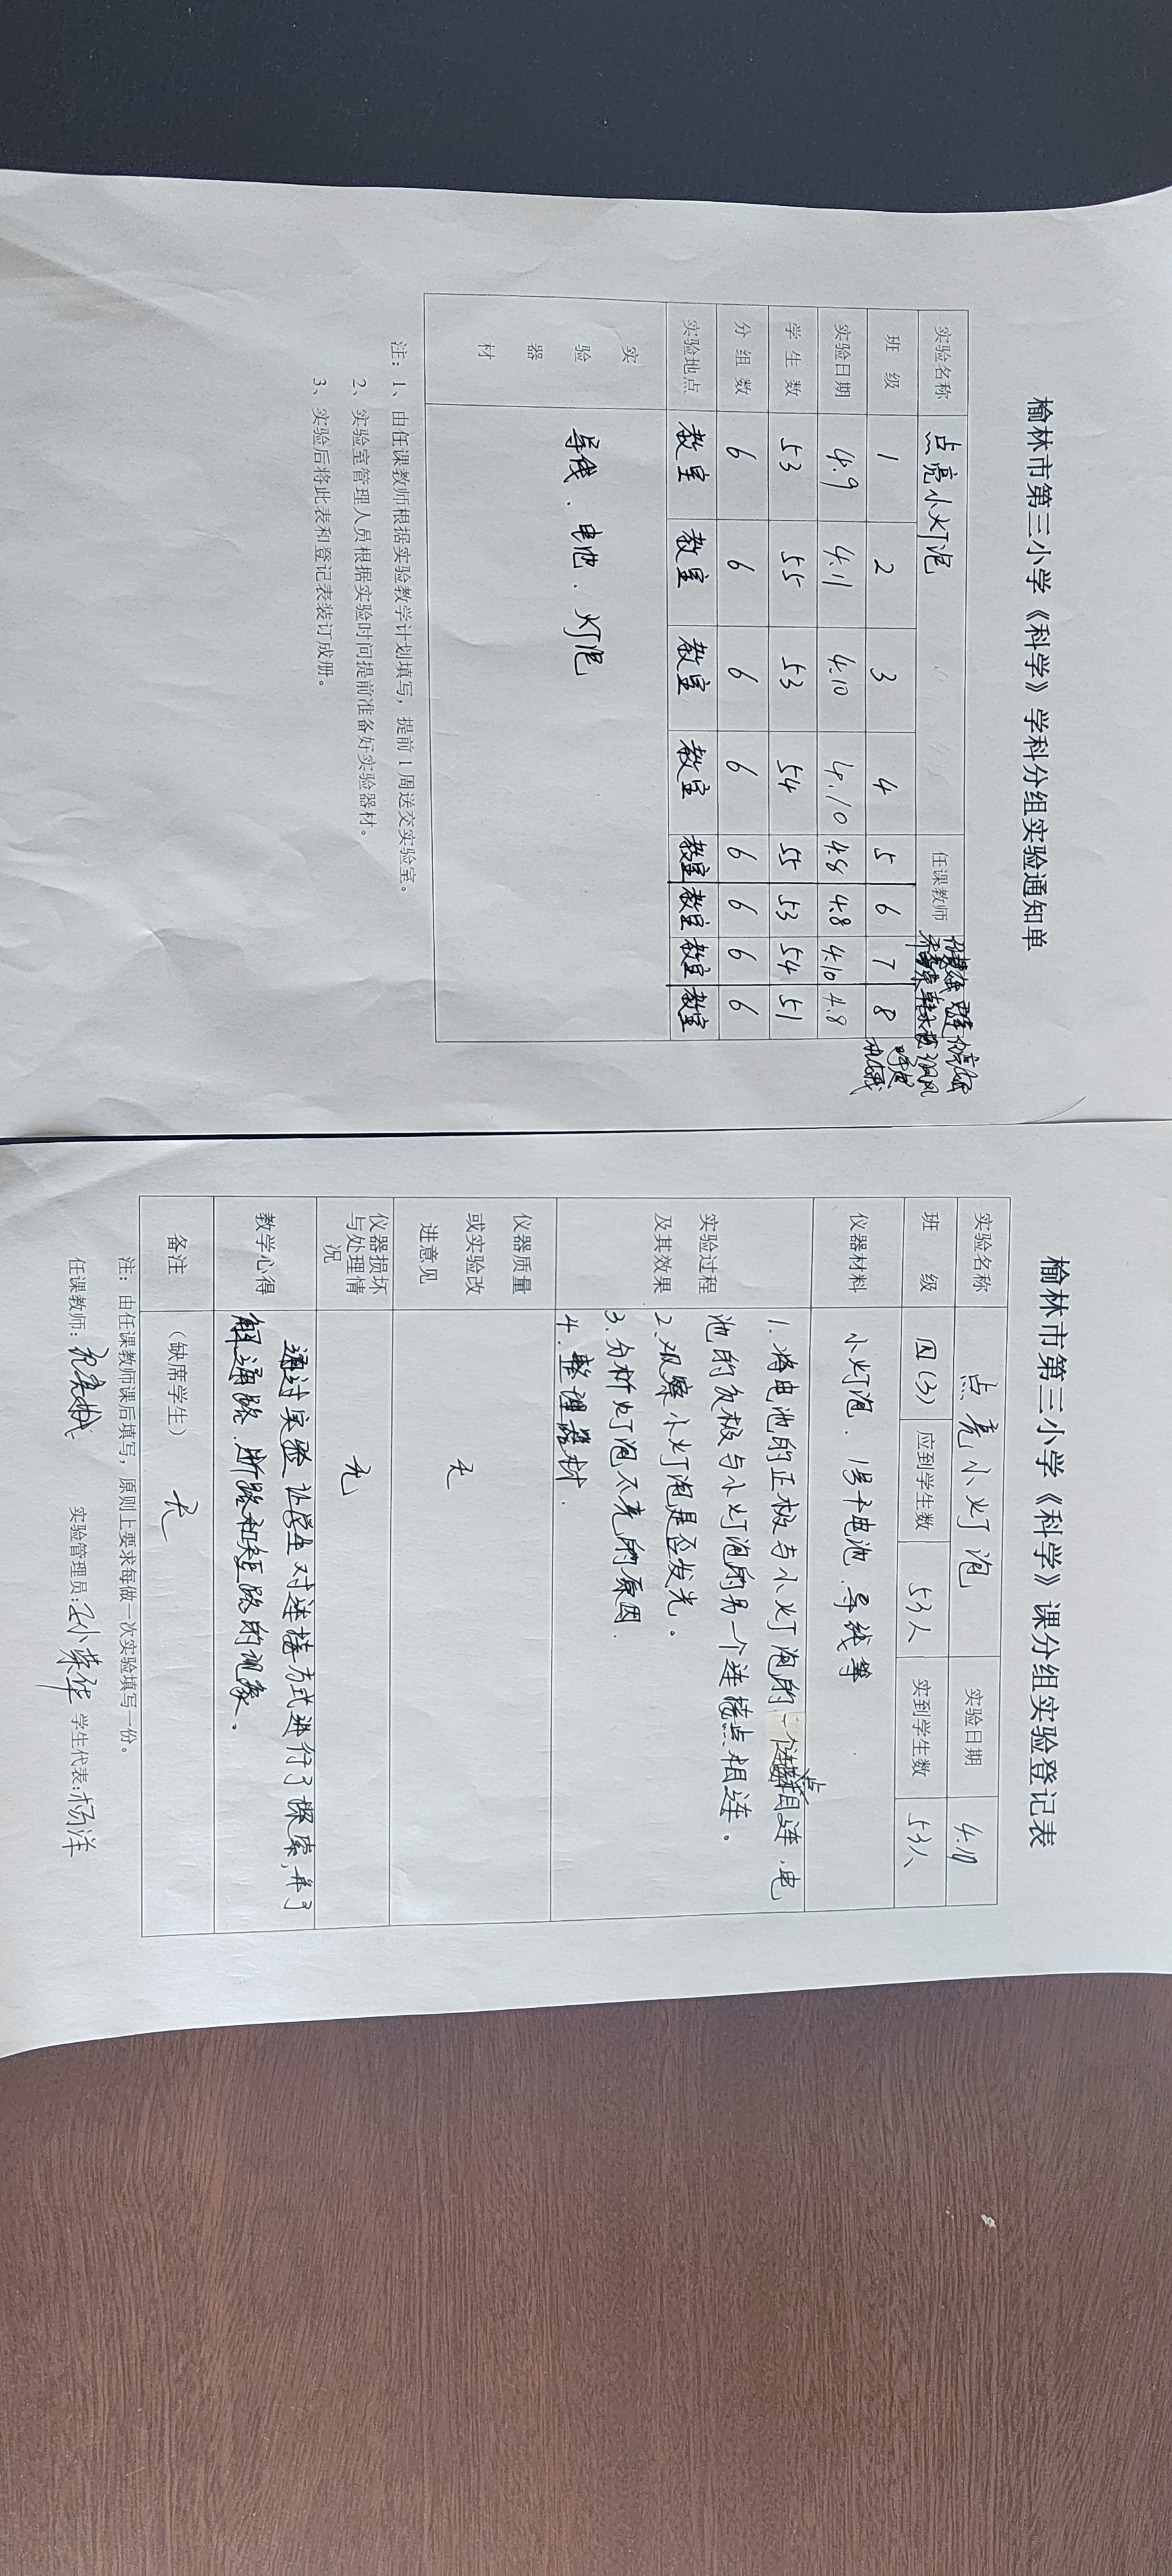 榆林市第三小学《科学》学科分组实验通知单
实验名称 点亮小灯泡 任课教师
班级 1 2 3 4 5 6 7 8
实验日期 4.9 4.11 4.10 4.10 4.8 4.8 4.10 4.8
学生数 53 55 53 54 55 53 54 51
分组数 6 6 6 6 6 6 6 6
实验地点 教室 教室 教室 教室 教室 教室 教室 教室
实验器材 导线、电池、灯泡
注：1、由任课教师根据实验教学计划填写，提前1周送交实验室。
2、实验室管理人员根据实验时间提前准备好实验器材。
3、实验后将此表和登记表装订成册。
榆林市第三小学《科学》课分组实验登记表
实验名称 点亮小灯泡 实验日期 4.10
班级 四(3) 应到学生数 53人 实到学生数 53人
仪器材料 小灯泡、1号干电池、导线等
实验过程及其效果
1.将电池的正极与小灯泡的一个连接点相连,电
池的负极与小灯泡的另一个连接点相连。
2.观察小灯泡是否发光。
3.分析灯泡不亮的原因.
4.整理器材.
仪器质量或实验改进意见 无
仪器损坏与处理情况 无
教学心得 通过实验让学生对连接方式进行了探索,并了
解通路、断路和短路的现象。
备注 （缺席学生） 无
注：由任课教师课后填写，原则上要求每做一次实验填写一份。
任课教师: 实验管理员:孙荣华 学生代表:杨洋